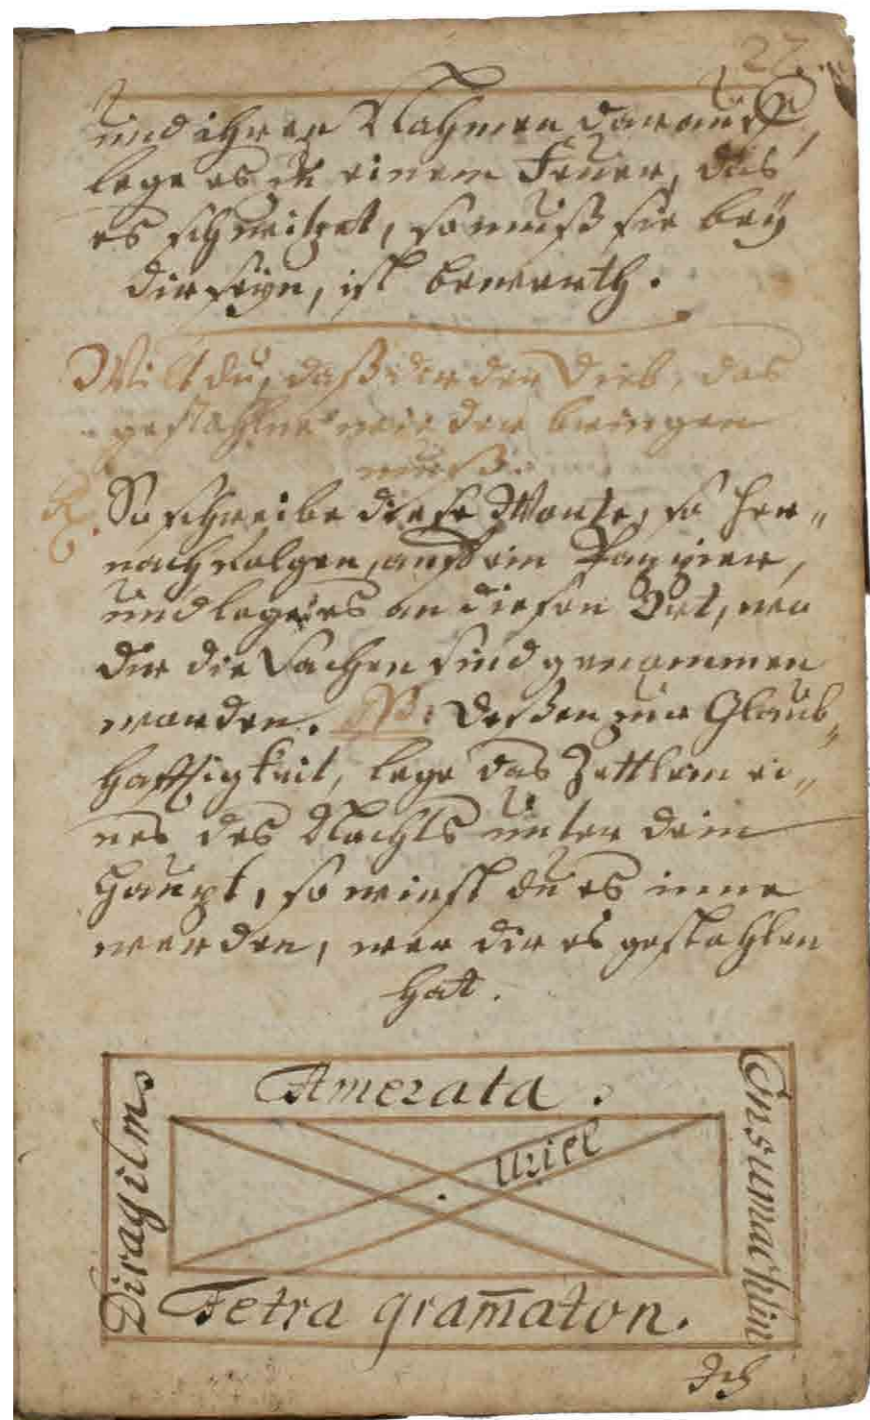 27.
und ihren Nahmen darauf,
lege es zu einem Feuer, das
es schwitzet, so muß sie bey
dir seyn, ist bewerth.
Wilt du, daß dir der Dieb, das
gestohlne wieder bringen
muß.
So schreibe diese Worte, so her„
nach folgen, auf ein Pappier,
und lege es an diesen Ort, wo
dir die Sachen sind genommen
worden. NB: Dessen zur Glaub„
hafftigkeit, lege das Zettlein ei„
nes des Nachts unter dein
Haupt, so wirst du es inne
werden, wer dir es gestohlen
hat.
Amerata.
Diragilm.
Uriel
Tetra gram̅aton.